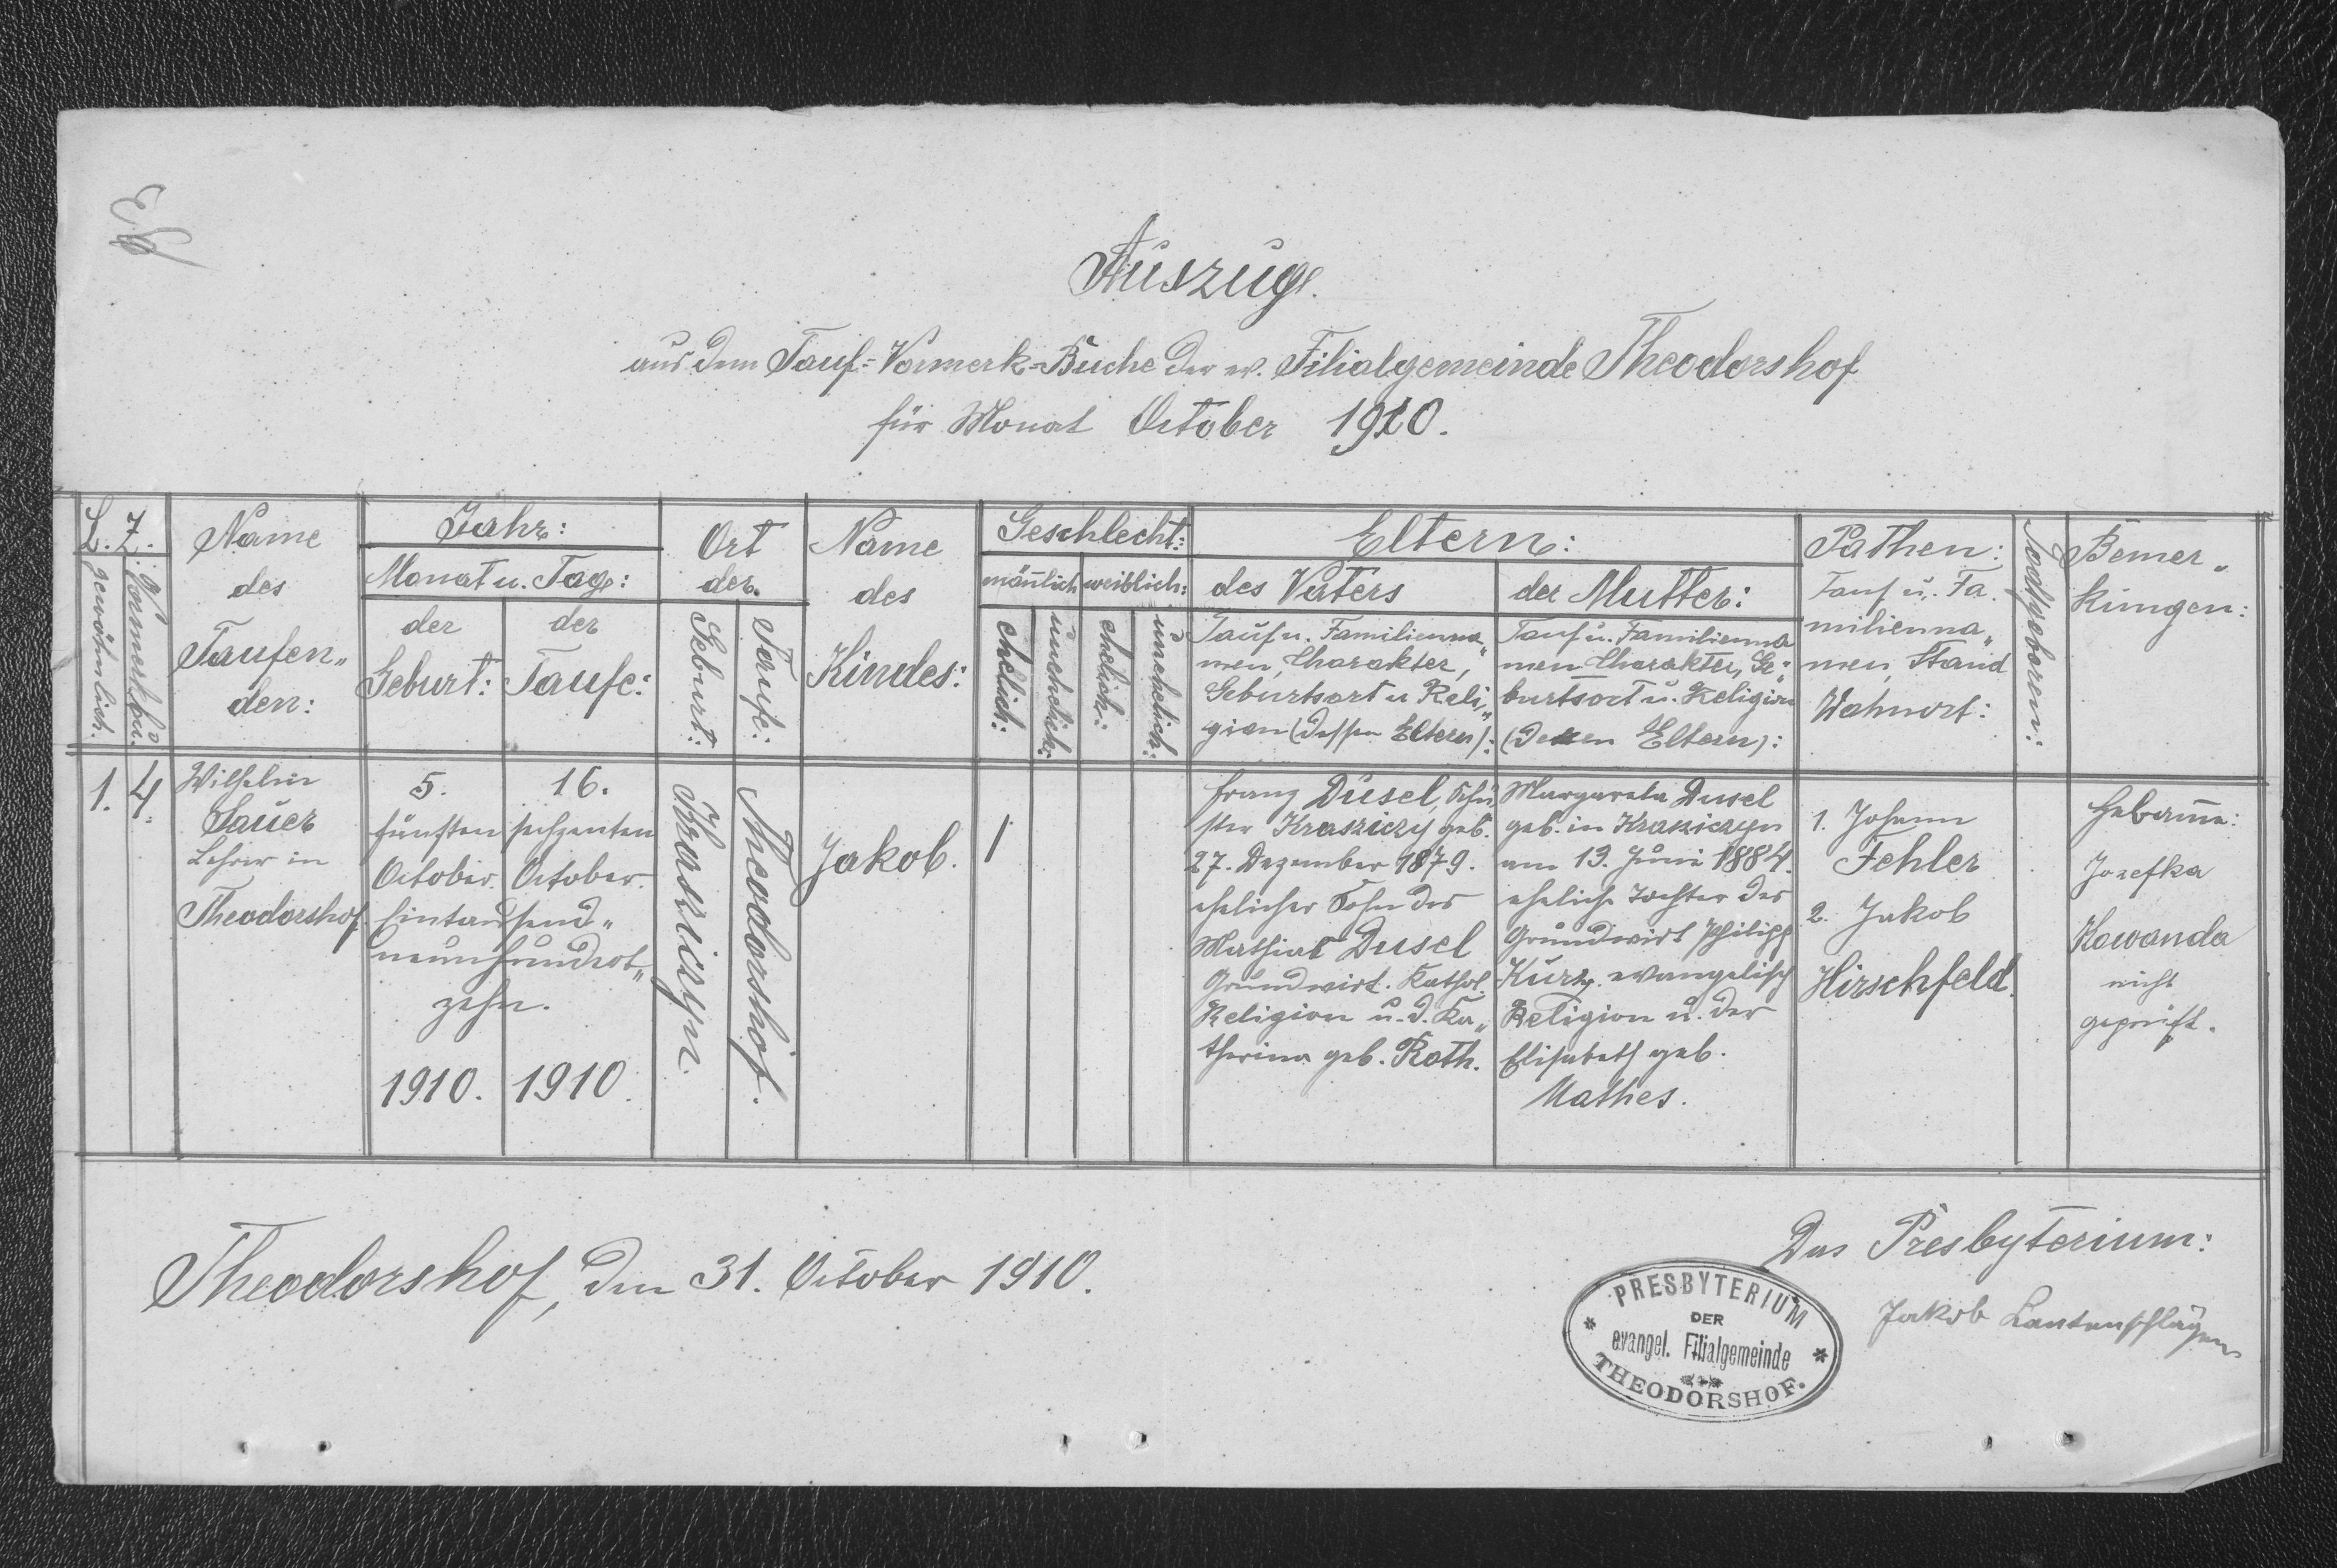 Auszug.
aus dem Tauf=Vormerk=Buche der ev. Filialgemeinde Theodorshof
für Monat October 1910.
L. Z.
gewöhnlich:
Vormerkb.
Name
des
Taufen„
den:
Jahr:
Monat u. Tag:
der
Geburt:
der
Taufe:
Ort
der
Geburt:
Taufe:
Name
des
Kindes:
Geschlecht:
mañlich
weiblich:
ehelich:
unehelich:
ehelich:
unehelich:
Eltern:
des Vaters
Tauf u. Familienna„
men, Charakter,
Geburtsort u Reli„
gion (dessen Eltern):
der Mutter:
Tauf u. Familienna
men Charakter, Ge„
burtsort u. Religion
(deren Eltern):
Pathen:
Tauf u. Fa.
milienna„
men, Stand
Wohnort:
Todtgeboren:
Bemer„
kungen:
1.
4.
Wilhelm
Sauer
Lehrer in
Theodorshof.
5.
fünften
October.
16.
sechzenten
October.
Eintausend„
neunhundert„
zehn.
1910.
1910.
Krasziczyn
Theodorshof.
Jakob.
1
Franz Dusel, Schu
ster Krasziczy geb.
27. Dezember 1879.
ehelicher Sohn des
Mathias Dusel
Grundwirt. Kathol.
Religion u. d. Ka„
therina geb. Roth.
Margareta Dusel
geb. in Krasiczyn
am 13. Juni 1884.
eheliche Tochter des
Grundwirt Philipp
Kurz. evangelisch
Religion u. der
Elisabeth geb.
Mathes.
1. Johann
Fehler
2. Jakob
Hirschfeld.
Hebam̄e:
Josefka
Kowanda
nicht
geprüft.
Theodorshof, den 31. October 1910.
Das Presbyterium:
Jakob Lautenschläger
PRESBYTERIUM
DER
evangel. Filialgemeinde
THEODORSHOF.